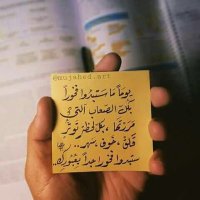 @mujahed.art
يوماً ما ستبدوا فخوراً
بكل الصعاب التي
مررتها ، بكل لحظة توتر
قلق ، خوف ، سهر ..
ستبدوا فخوراً جداً بعبورك..